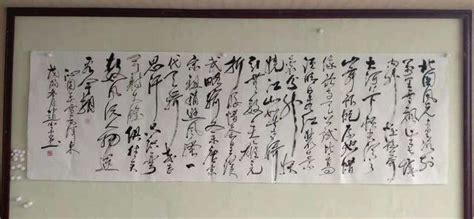 北国风光千里冰封
万里雪飘望长城
内外惟余莽莽
大河上下顿失滔滔
山舞银蛇原驰蜡
象欲与天公试比高
须晴日看红装素
裹分外妖
娆江山如此多娇
引无数英雄竞
折腰惜秦皇汉
武略输文采唐
宗宋祖稍逊风骚一
代天骄成吉
思汗只识弯
弓射大雕俱往矣
数风流人物还
看今朝
沁园春雪